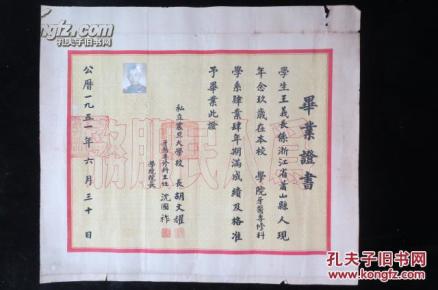 畢業證書
學生王義長係浙江省蕭山縣人現
年念玖歲在本校 學院牙醫專修科
學系肄業肆年期滿成績及格准
予畢業此證
私立震旦大學校 長胡文耀
牙醫專修科主任沈國祚
學院院長
公曆一九五一年六月三十日
為人民服務
孔夫子旧书网
www.kongfz.com
孔夫子旧书网
www.kongfz.com